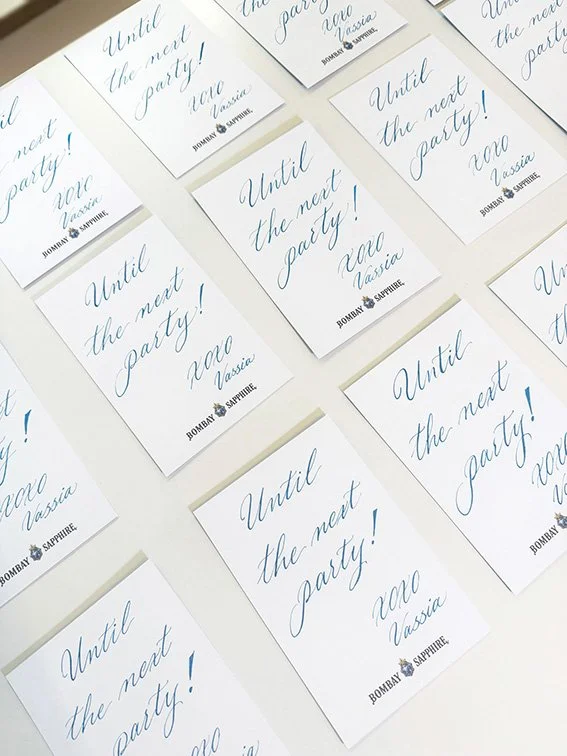 Until
the next
party!
xoxo
Vassia
BOMBAY SAPPHIRE
party!
xoxo
Vassia
BOMBAY SAPPHIRE
the next
party
next
party!
xoxo
Vassia
BOMBAY SAPPHIRE
Until
the next
party!
xoxo
Vassia
BOMBAY SAPPHIRE
Until
the next
party!
xoxo
Vassia
BOMBAY SAPPHIRE
Until
the next
party!
xoxo
Vassia
BOMBAY SAPPHIRE
xoxo
Vassia
BOMBAY SAPPHIRE
Until
the next
party!
xoxo
BOMBAY
Until
the next
party!
xoxo
Vassia
BOMBAY SAPPHIRE
Until
the next
party!
xoxo